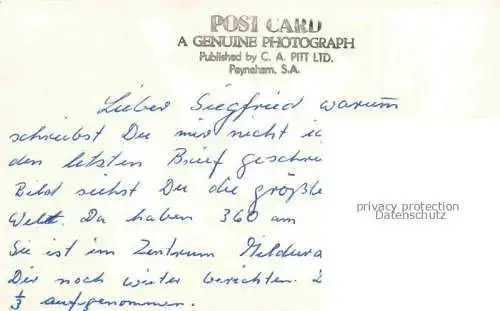 POST CARD
A GENUINE PHOTOGRAPH
Published by C. A. PITT LTD.
Payneham, S.A.
Lieber Siegfried warum
schreibst Du mir nicht ic
den letzten Brief geschrie
Bild siehst Du die größte
Welt. Da haben 360 am
privacy protection
Datenschutz
Sie ist im Zentrum Mildura
Dir noch weiter berichten.
⅓ aufgenommen.